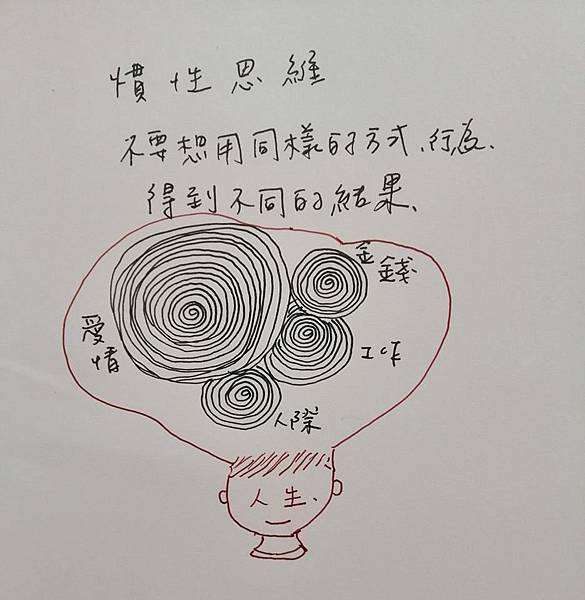 慣性思維
不要想用同樣的方式、行為、
得到不同的結果、
金錢
愛情
工作
人際
人生、